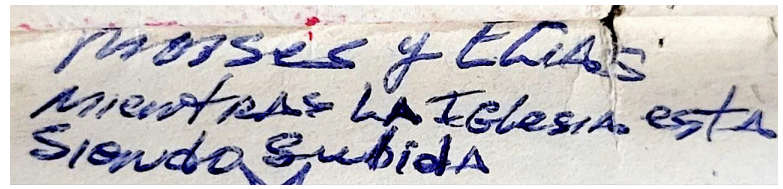 Moises y Elias
mientras la Iglesia esta
siendo subida